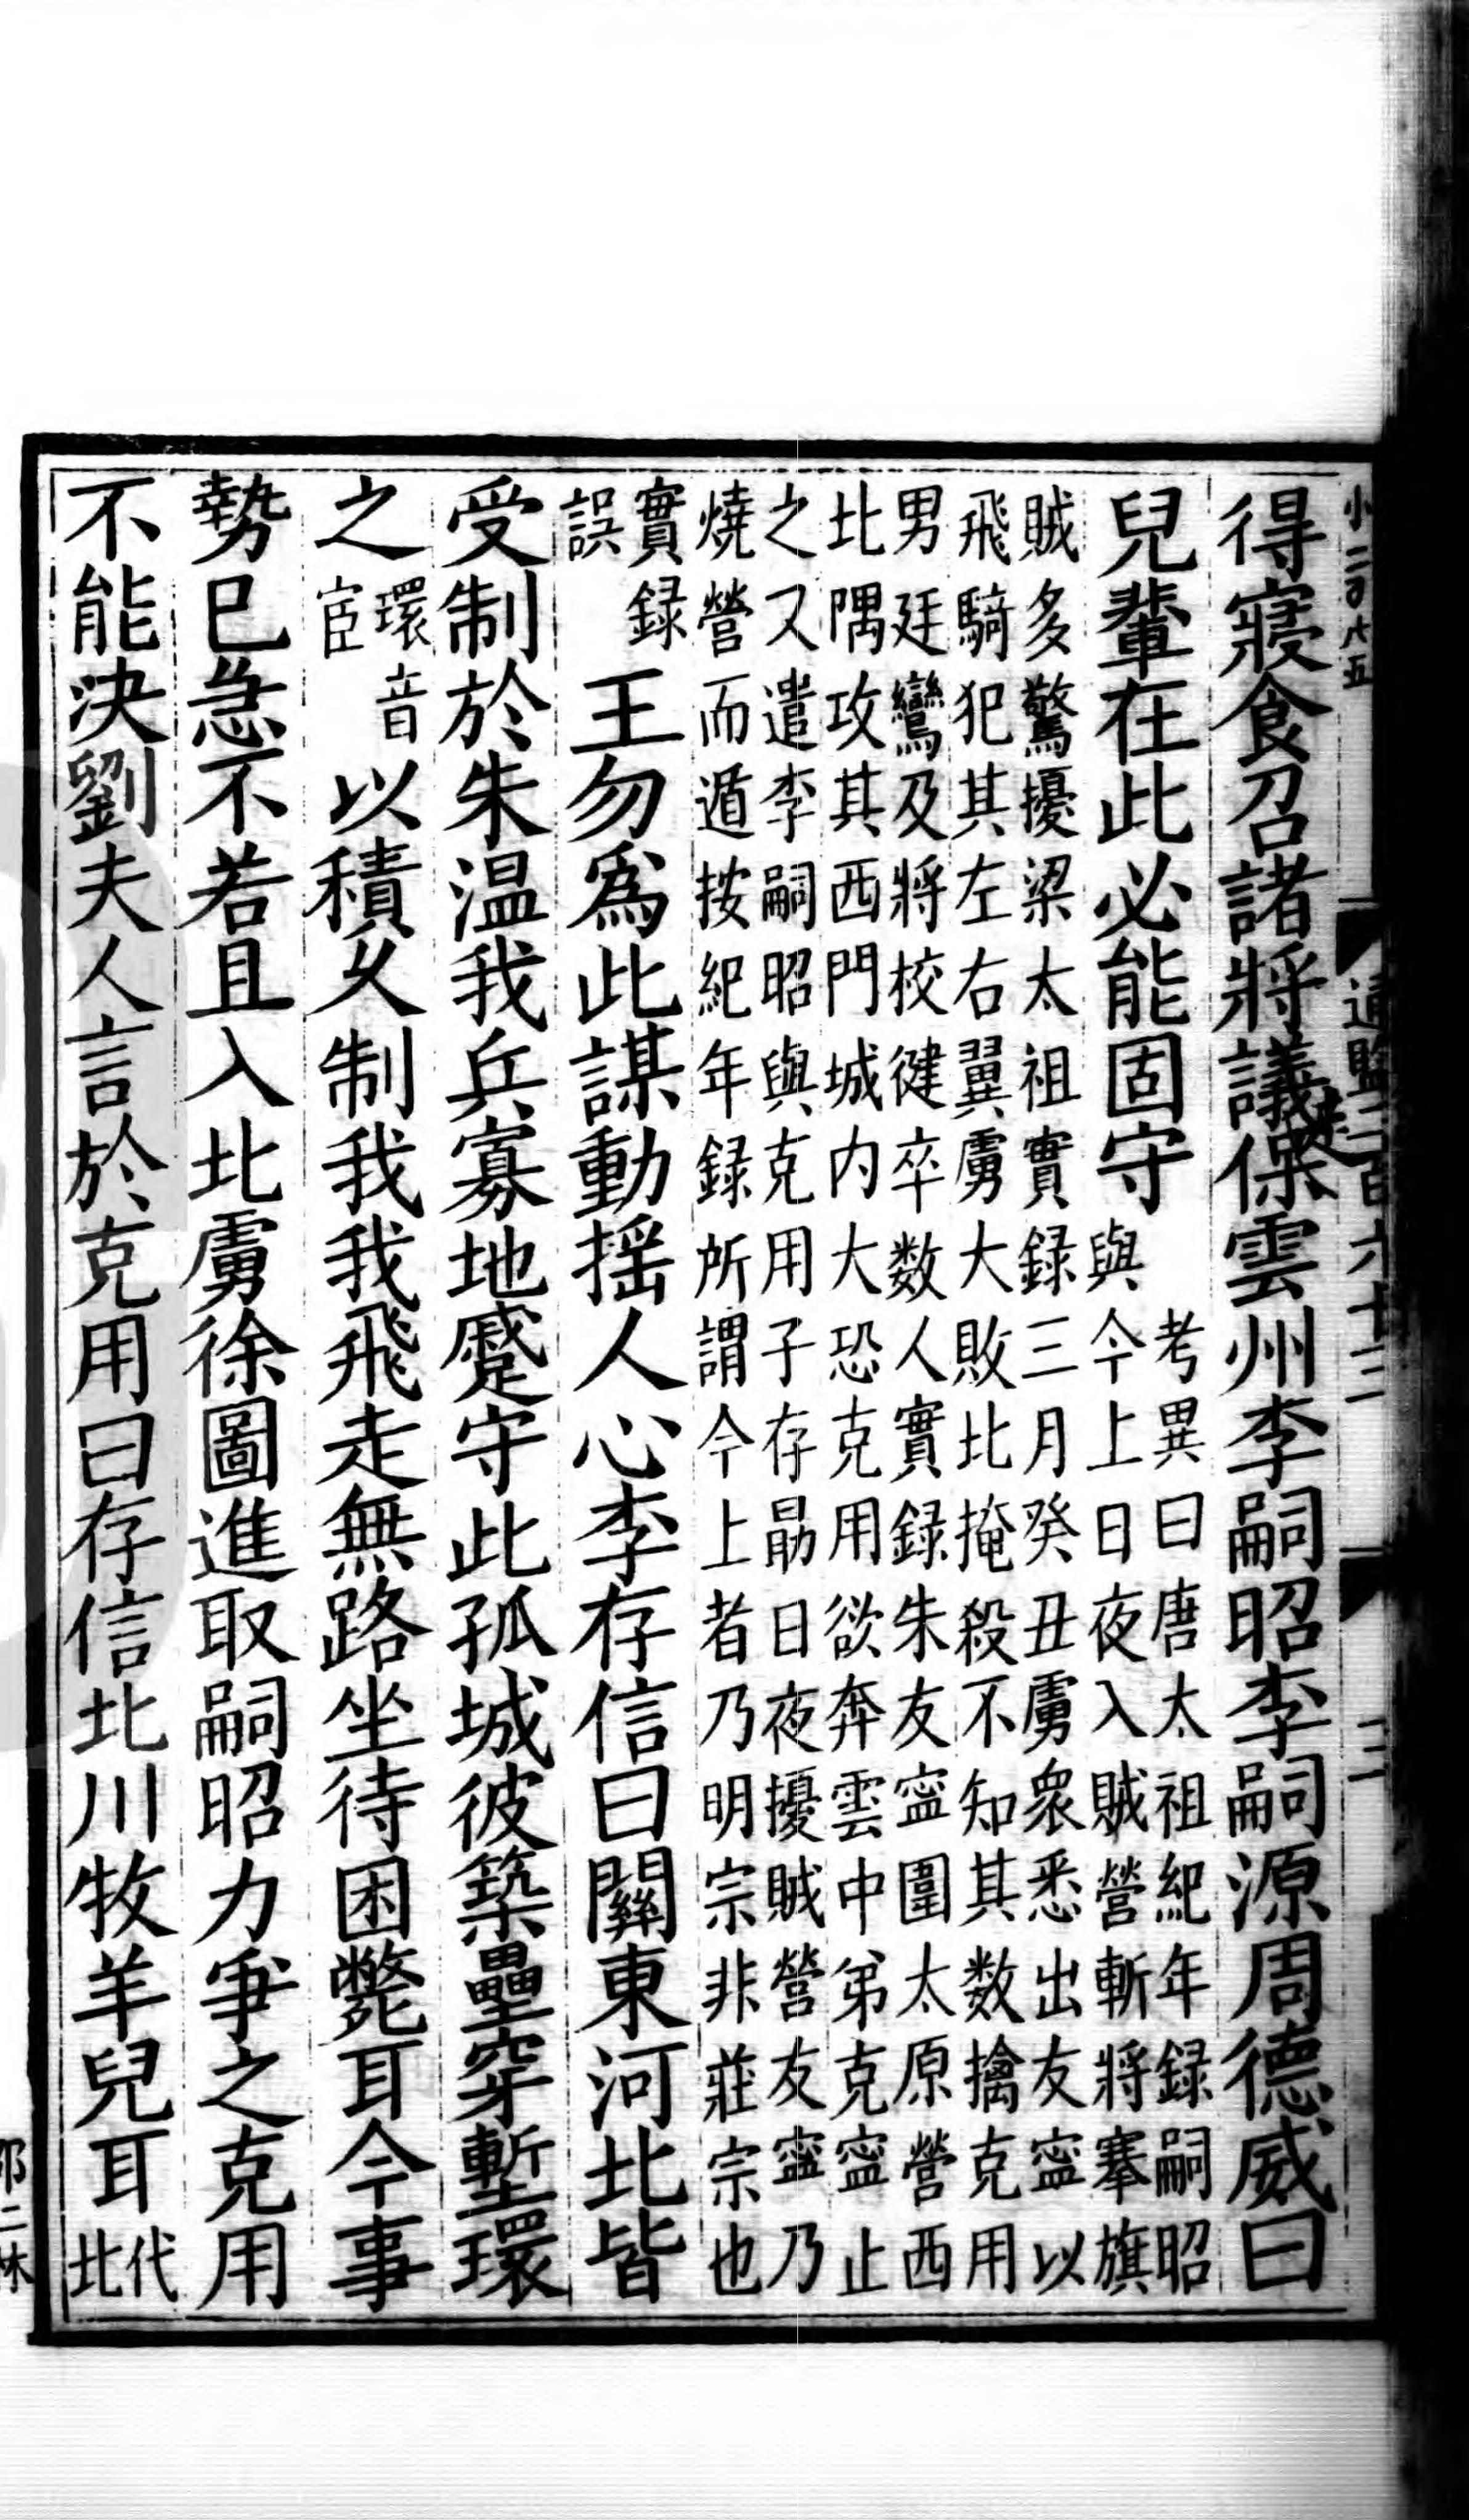 通鑑二百六十三
二
得寢食召諸將議保雲州李嗣昭李嗣源周德威曰
兒輩在此必能固守
考異曰唐太祖紀年録嗣昭
與今上日夜入賊營斬將搴旗
賊多驚擾梁太祖實録三月癸丑虜衆悉出友寧以
飛騎犯其左右翼虜大敗北掩殺不知其数擒克用
男廷鸞及將校健卒数人實録朱友寧圍太原營西
北隅攻其西門城内大恐克用欲奔雲中弟克寧止
之又遣李嗣昭與克用子存勗日夜擾賊營友寧乃
燒營而遁按紀年録所謂今上者乃明宗非莊宗也
實録
誤
王勿爲此謀動揺人心李存信曰關東河北皆
受制於朱温我兵寡地蹙守此孤城彼築壘穿塹環
之環音宦以積久制我我飛走無路坐待困斃耳今事
勢巳急不若且入北虜徐圖進取嗣昭力爭之克用
不能決劉夫人言於克用曰存信北川牧羊兒耳代北